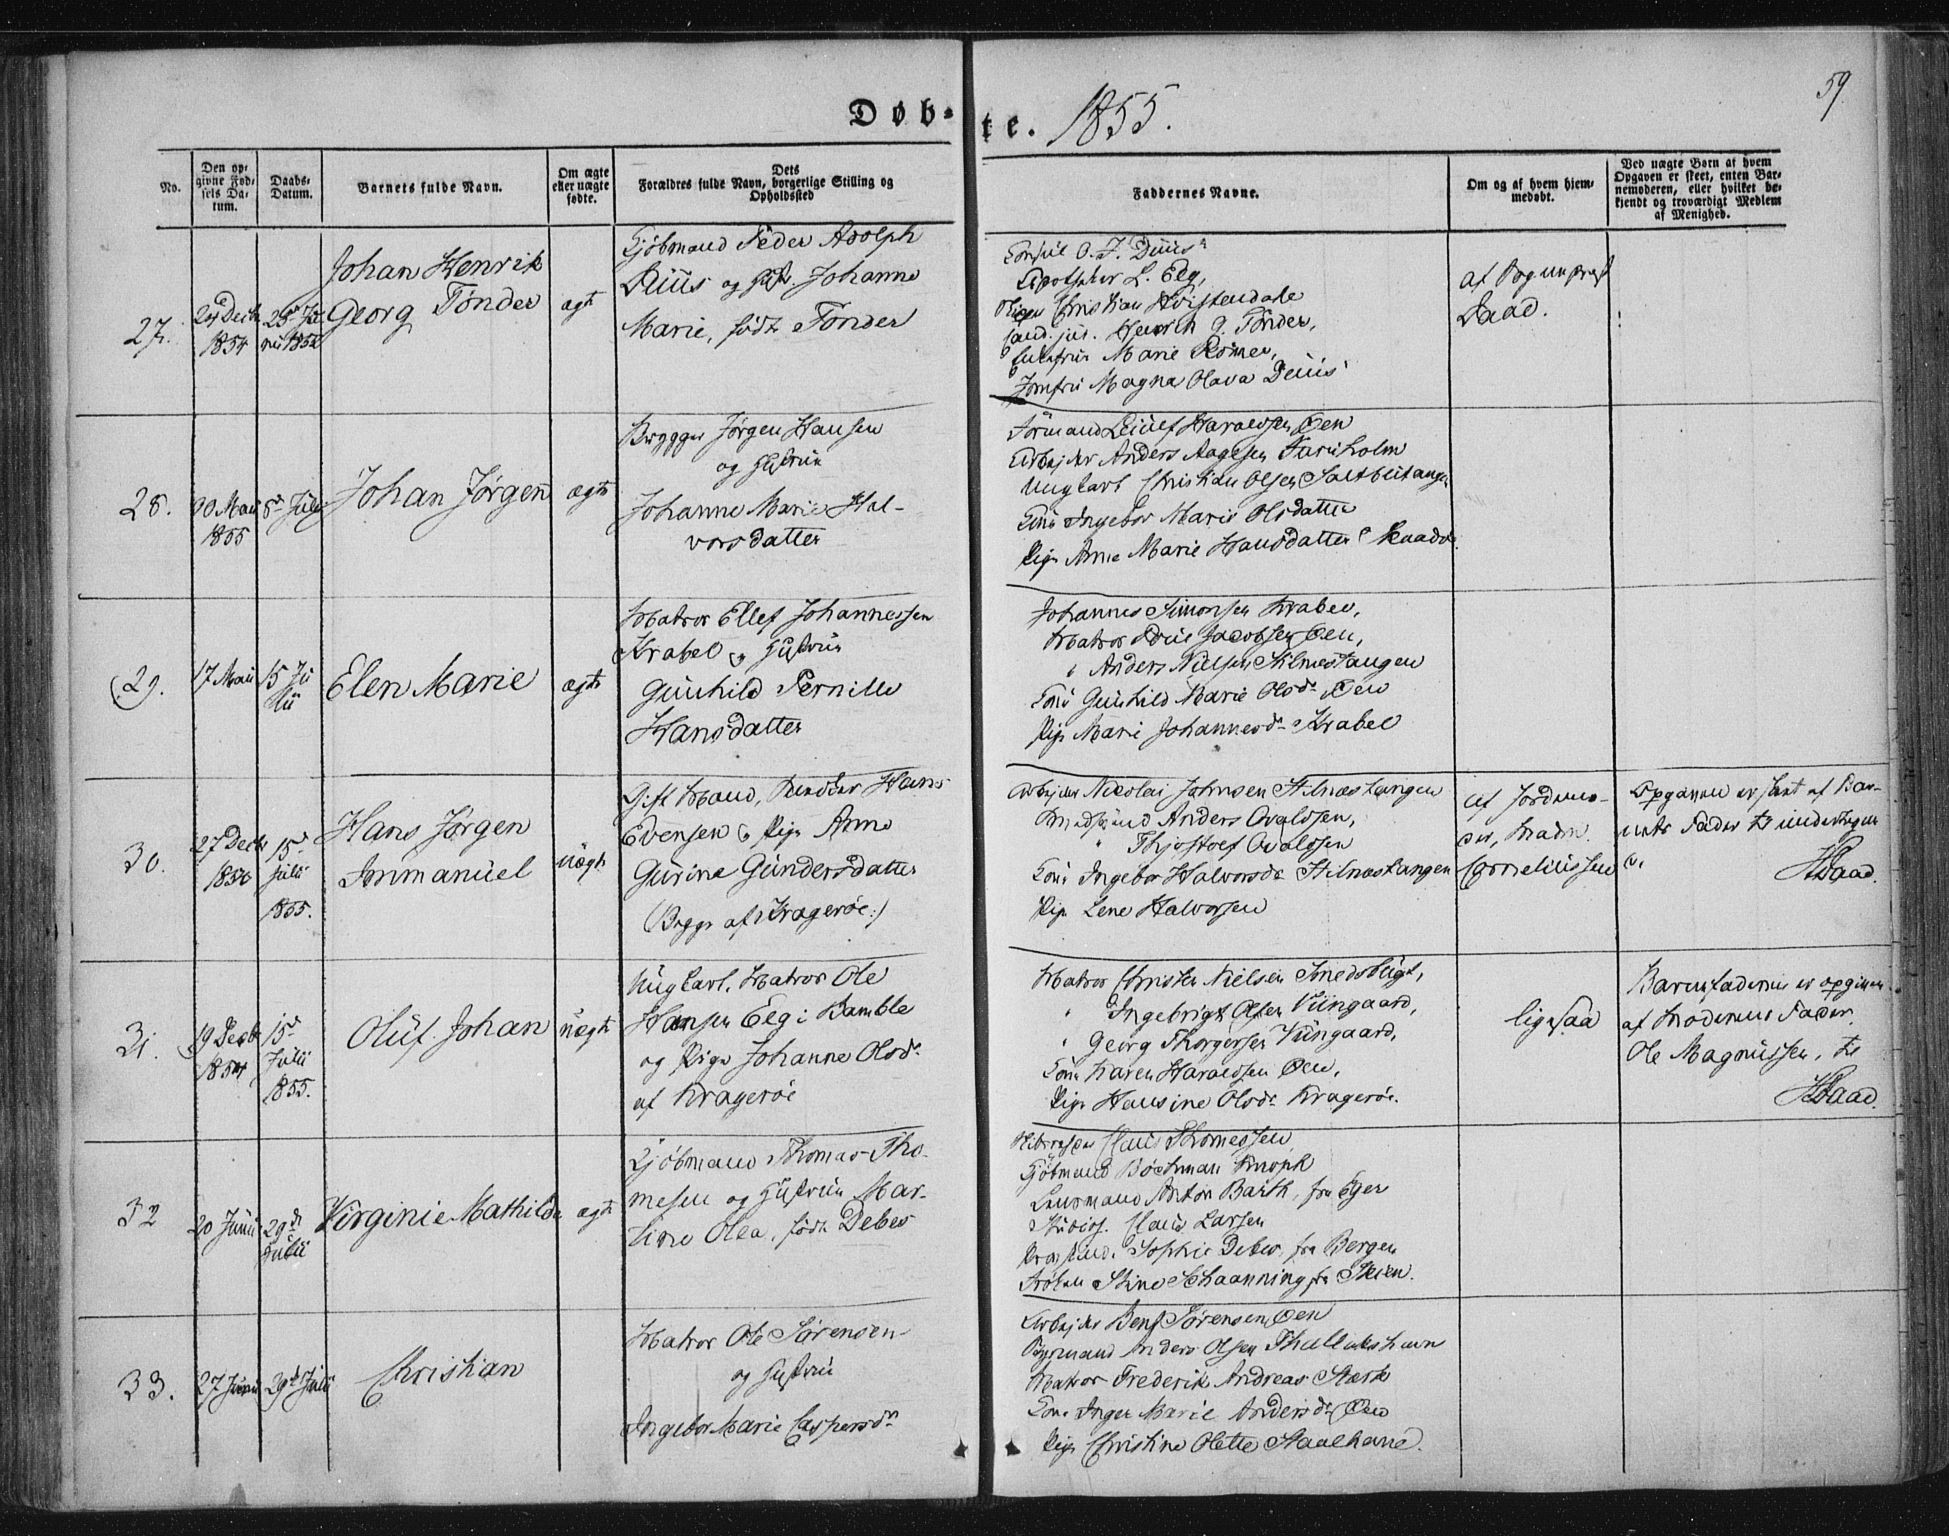 59.
Døb-te. 1855.
No.
Den op-
givne Fød-
sels Da-
tum.
Daabs-
Datum.
Barnets fulde Navn.
Om ægte
eller uægte
fødte.
Dets
Forældres fulde Navn, borgerlige Stilling og
Opholdssted
Faddernes Navne.
Om og af hvem hjem-
medøbt.
Ved uægte Børn af hvem
Opgaven er skeet, enten Bar-
nemoderen, eller hvilket be-
kjendt og troværdigt Medlem
af Menighed.
27.
Decb
1854
Johan Henrik
Georg Tønder
ægte
Kjøbmand Peder Adolph
Düüs og Hustr. Johanne
Marie, født Tønder
Consul O. F. Düüs
Apotheker L. Eeg,
Christian Hvistendale
Cand. jur. Henrik G. Tønder,
Marie Rømer,
Jomfru Magna Olava Düüs
af Sognepræst
Daad.
28.
30 Mai
1855
8de Juli
Johan Jørgen
ægte
Brygger Jørgen Hansen
og Hustrue
Johanne Marie Hal-
vorsdatter
Formand Haraldsen Øen
Arbejder Anders Aagesen Furuholm
Ungkarl Christian Olsen
Kone Ingebor Marie Olsdatter
Pige Anne Marie Hansdatter
29.
17 Mai
15 Ju
lii
Elen Marie
ægte
Matros Ellef Johannessen
Krabel og Hustrue
Gunhild Pernille
Hansdatter
Johannes Simonsen Krabel,
Matros Jacobsen Øen,
" Anders Nielsen Stilnestangen
Kone Gunhild Marie Olsdr Øen
Pige Marie Johannesdr Krabel
30.
27 Decb
15de
Julii
1855.
Hans Jørgen
Immanuel
uægte
Gift Mand, Hans
Evensen og Pige Anne
Gurine Gundersdatter
(Begge af Kragerøe:)
Arbejder Nicolai Johnsen Stilnæstangen
Anders Ovaldsen,
" Thjostolf Ovaldsen
Kone Ingebor Halvorsdr Stilnæstangen
Pige Lene Halvorsen
af Jordemo-
der, Madm.
Corneliussen
Opgaven er skeet af Bar-
nets Fader til undertegne
de,
HDaad.
31.
19 Decb
1854
15de
Julii
1855.
Oluf Johan
uægte
Ungkarl, Matros Ole
Hansen Eeg i Bamble
og Pige Johanne Olsdr
af Kragerøe
Matros Christen Nielsen Smedsbügt,
" Ingebrigt Olsen Viingaard,
" Georg Thorgersen Viingaard,
Kone Karen Haraldsen Øen,
Pige Hansine Olsdr Kragerøe.
ligesaa
Barnefaderen er opgiven
af Moderens Fader
Ole Magnussen, til
HDaad.
32
20 Junii
29de
Julii
Virginie Mathilde
ægte
Kjøbmand Thomas Tho-
mesen og Hustrue Mar-
tine Olea, født Debes
Claus Thomessen
Kjøbmand Bøckman
Lensmand Anton Barth, fra Eger
Studios. Claus Larsen
Sophie Debes, fra Bergen
Frøken Stine Schaanning fra Skien.
33.
27 Junii
29de Julii
Christian
Matros Ole Sørensen
og Hustrue
Ingebor Marie Caspersdr
Arbejder Bent Sørensen Øen
Anders Olsen
Matros Frederik Andreas Stærk
Kone Inger Marie Andersdr Øen
Pige Christine Olette Staalhane.